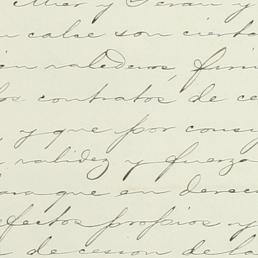 Mier y Teran y
calse son cierto
ien valederos, firm
los contratos de ce
, y que por consi
validez y fuerza
para que en derec
efectos propios y
de cesion de la